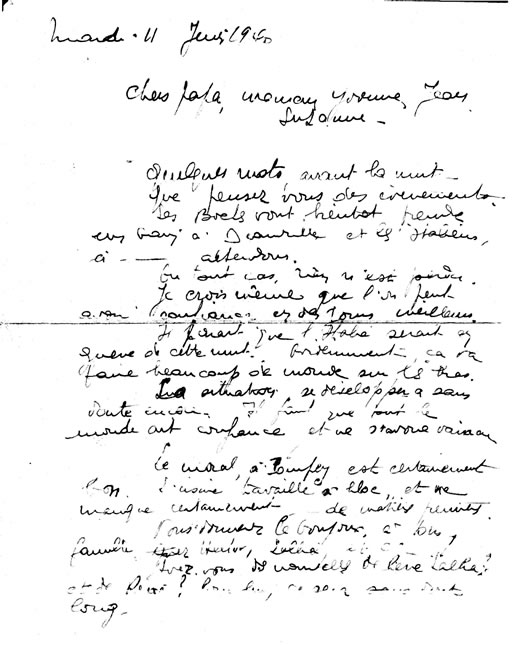 mardi 11 Juin 1940
Chers papa, maman, Yvonne, Jean
Suzanne -
Quelques mots avant la nuit -
Que pensez vous des évènements
Les Boches vont bientôt
à Deauville et les Italiens,
à - attendons.
En tout cas, rien n'est perdu.
Je crois même que l'on peut
avoir confiance en des jours meilleurs.
Il parait que l'Italie serait en
guerre de cette nuit. Evidemment, ça va
faire beaucoup de monde sur les bras.
La situation se développera sans
doute encore. Il faut que tout le
monde ait confiance et ne s'avoue vaincu
Le moral, à est certainement
bon. L'usine travaille à bloc, et ne
manque certainement de matières premières.
Vous donnerez le bonjour, à tous,
famille
Avez vous de nouvelles de
et de ? Pour lui, ce sera sans doute
long.